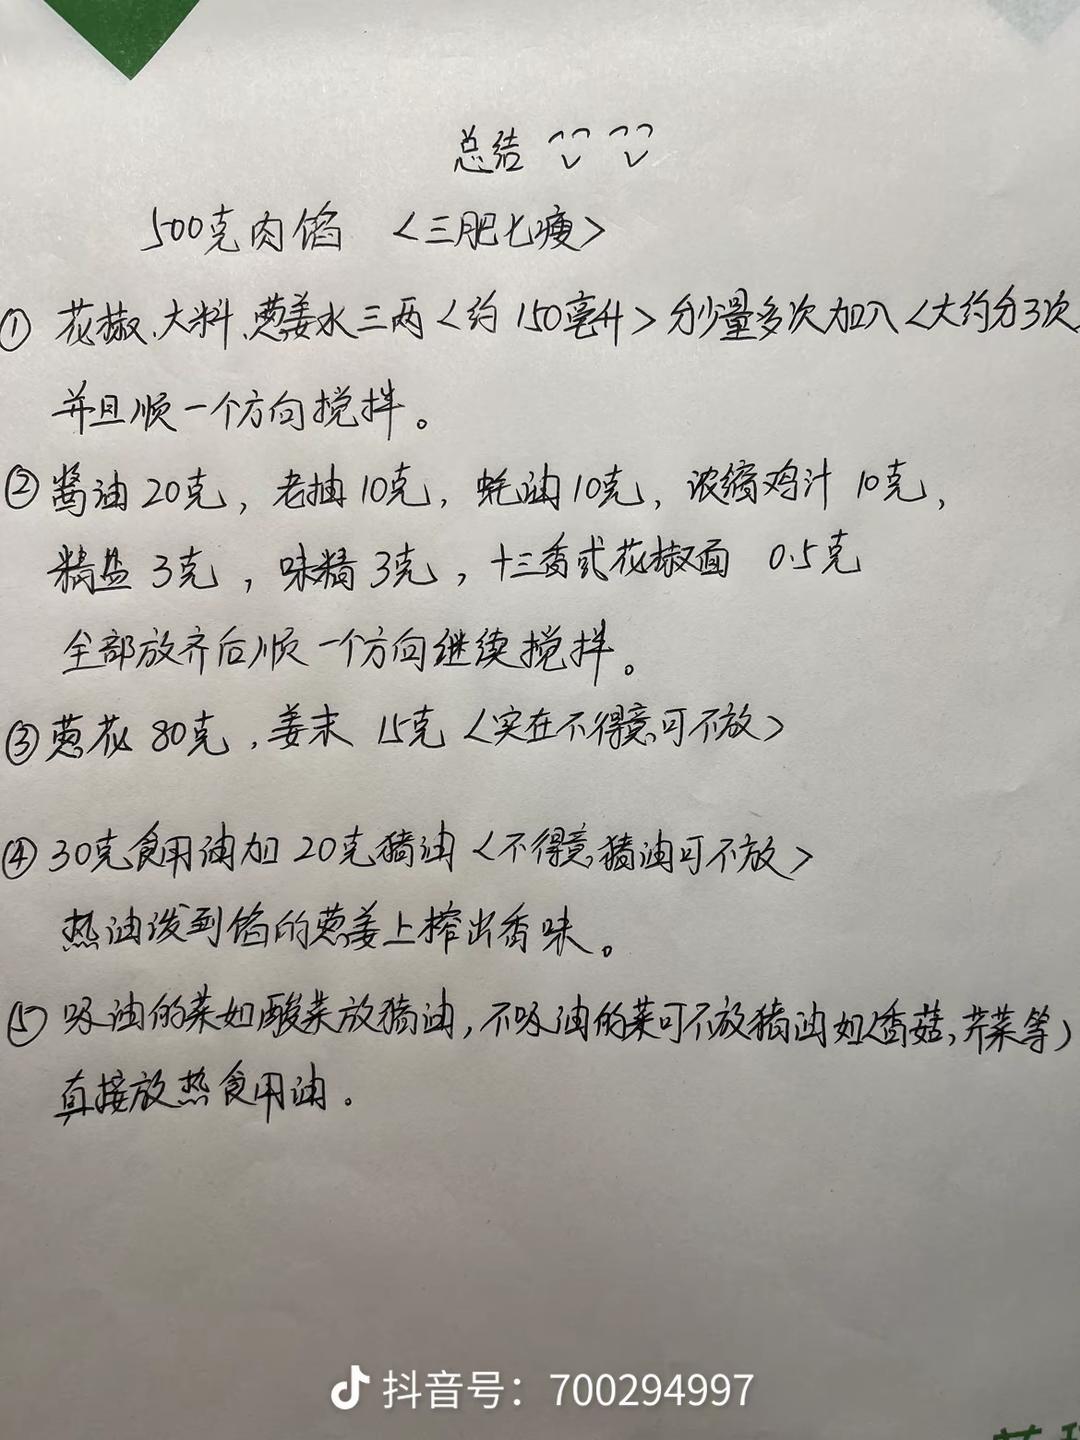 总结
500克肉馅 <三肥七瘦>
① 花椒、大料、葱姜水三两<约150毫升>分少量多次加入<大约分3次
并且顺一个方向搅拌。
② 酱油20克，老抽10克，蚝油10克，浓缩鸡汁10克，
精盐3克，味精3克，十三香或花椒面 0.5克
全部放齐后顺一个方向继续搅拌。
③ 葱花80克，姜末15克<实在不得意可不放>
④ 30克食用油加20克猪油<不得意猪油可不放>
热油泼到馅的葱姜上榨出香味。
⑤ 吸油的菜如酸菜放猪油，不吸油的菜可不放猪油如<香菇，芹菜等)
直接放热食用油。
抖音号：700294997